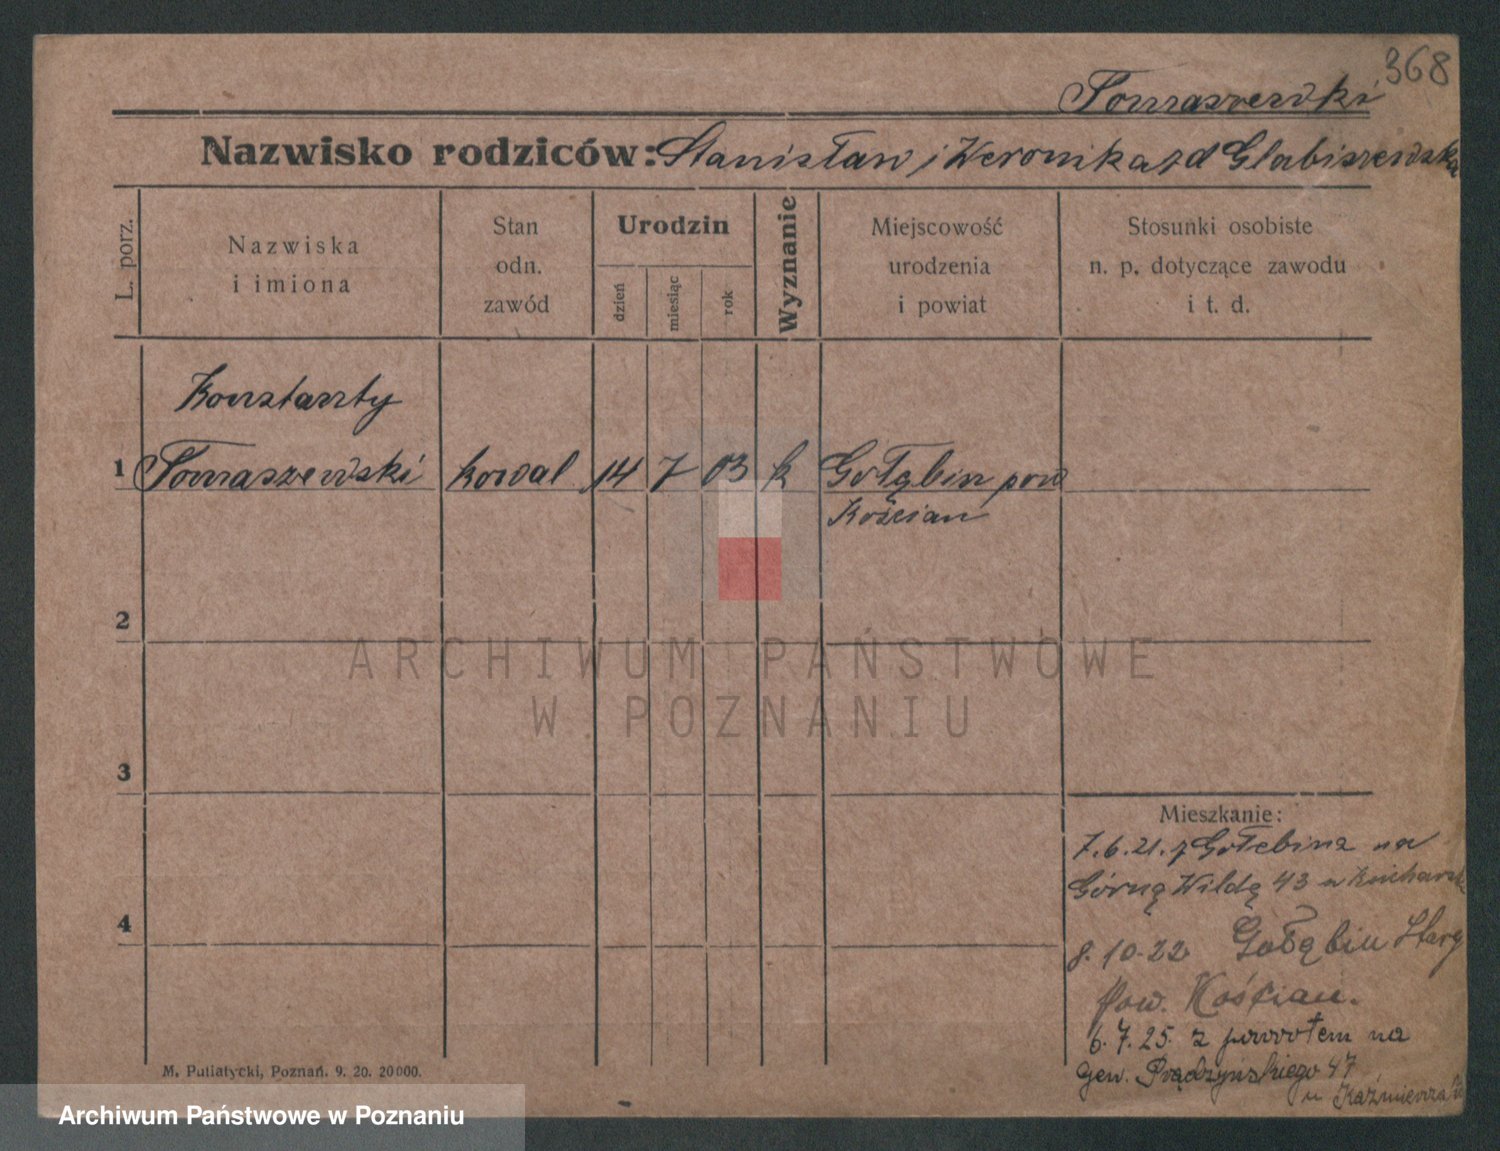 368
Tomaszewski
Nazwisko rodziców: Stanisław i Weronika zd Glabiszewska
L. porz.
Nazwiska
i imiona
Stan
odn.
zawód
Urodzin
dzień
miesiąc
rok
Wyznanie
Miejscowość
urodzenia
i powiat
Stosunki osobiste
n. p. dotyczące zawodu
i t. d.
Konstanty
1 Tomaszewski kowal 14 7 03 k Gołąbin pow
Kościan
2
3
4
Mieszkanie:
7.6.21. z Gołebina na
Górną Wildę 43
8.10.22 Gołąbin Stary
pow. Kościan.
6.7.25. z powrotem na
gen. Prądzyńskiego 47
u
M. Putiatycki, Poznań. 9. 20. 20000.
ARCHIWUM PAŃSTWOWE
W POZNANIU
Archiwum Państwowe w Poznaniu